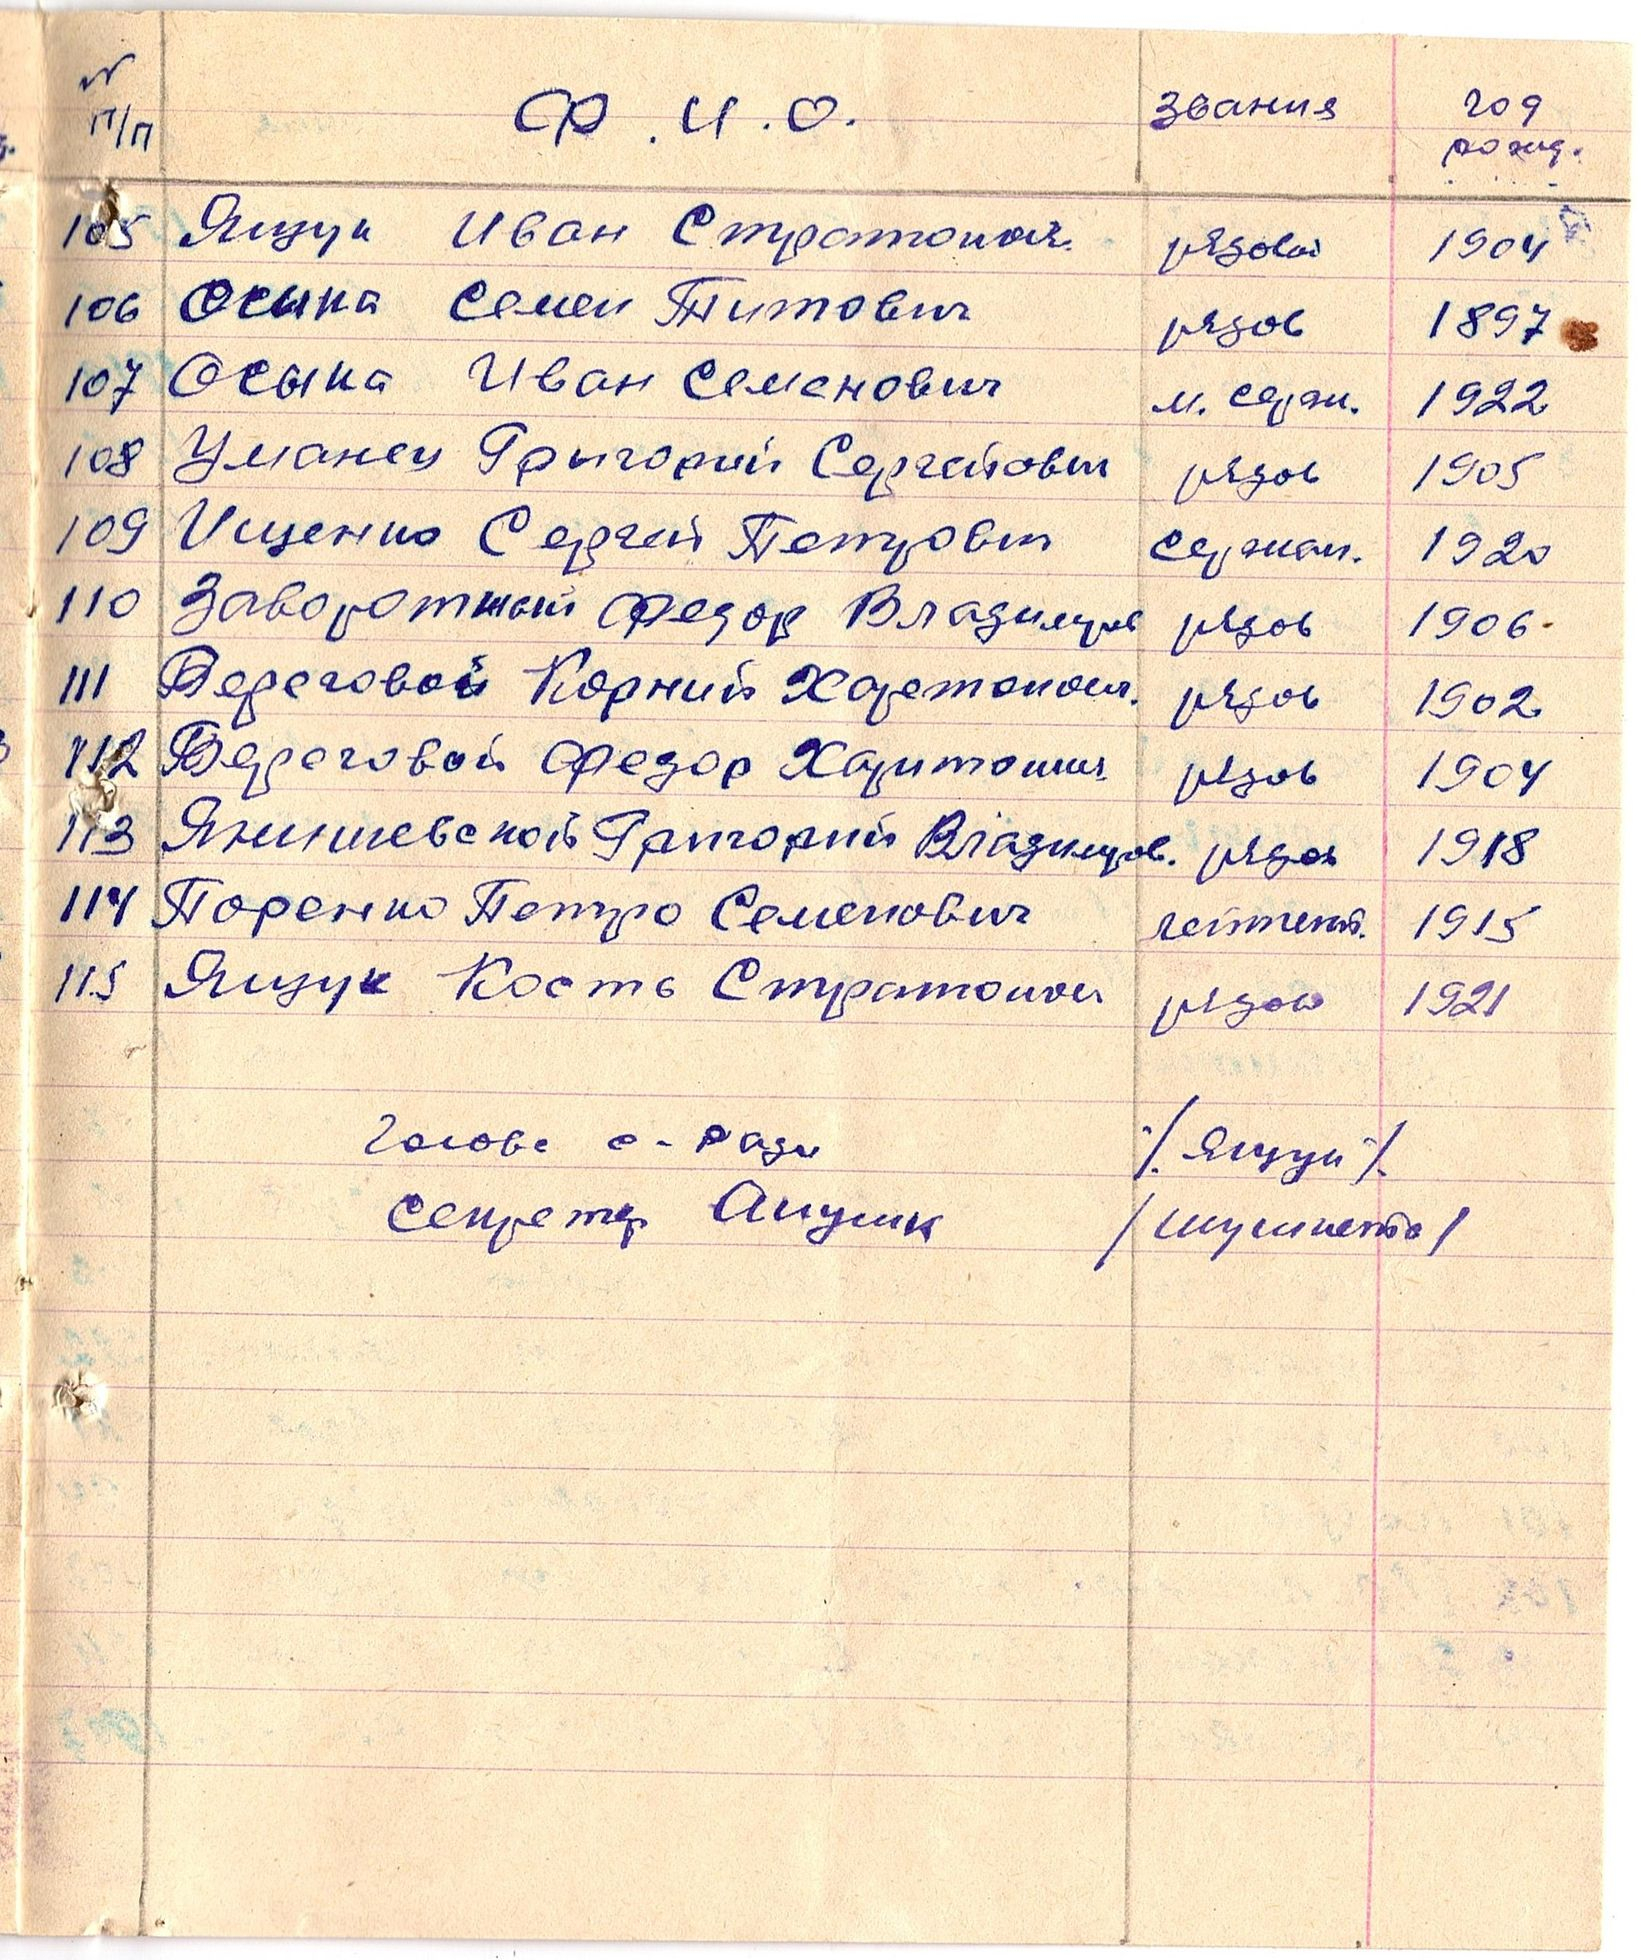 № п/п Ф.И.О. звания год рожд.
105 Ящук Иван Стратонович рядовой 1904
106 Осыка Семен Титович рядов 1897
107 Осыка Иван Семенович м. серж. 1922
108 Уманец Григорий Сергейович рядов 1905
109 Ищенко Сергей Петрович сержан. 1920
110 Заворотный Федор Владимиров рядов 1906
111 Береговой Корний Харетонович. рядов 1902
112 Береговой Федор Харитонович рядов 1904
113 Янишевской Григорий Владимиров. рядов 1918
114 Поренко Петро Семенович лейтенат. 1915
115 Ящук Кость Стратонович рядов 1921
Голова с-ради /Ящук/
Секретар